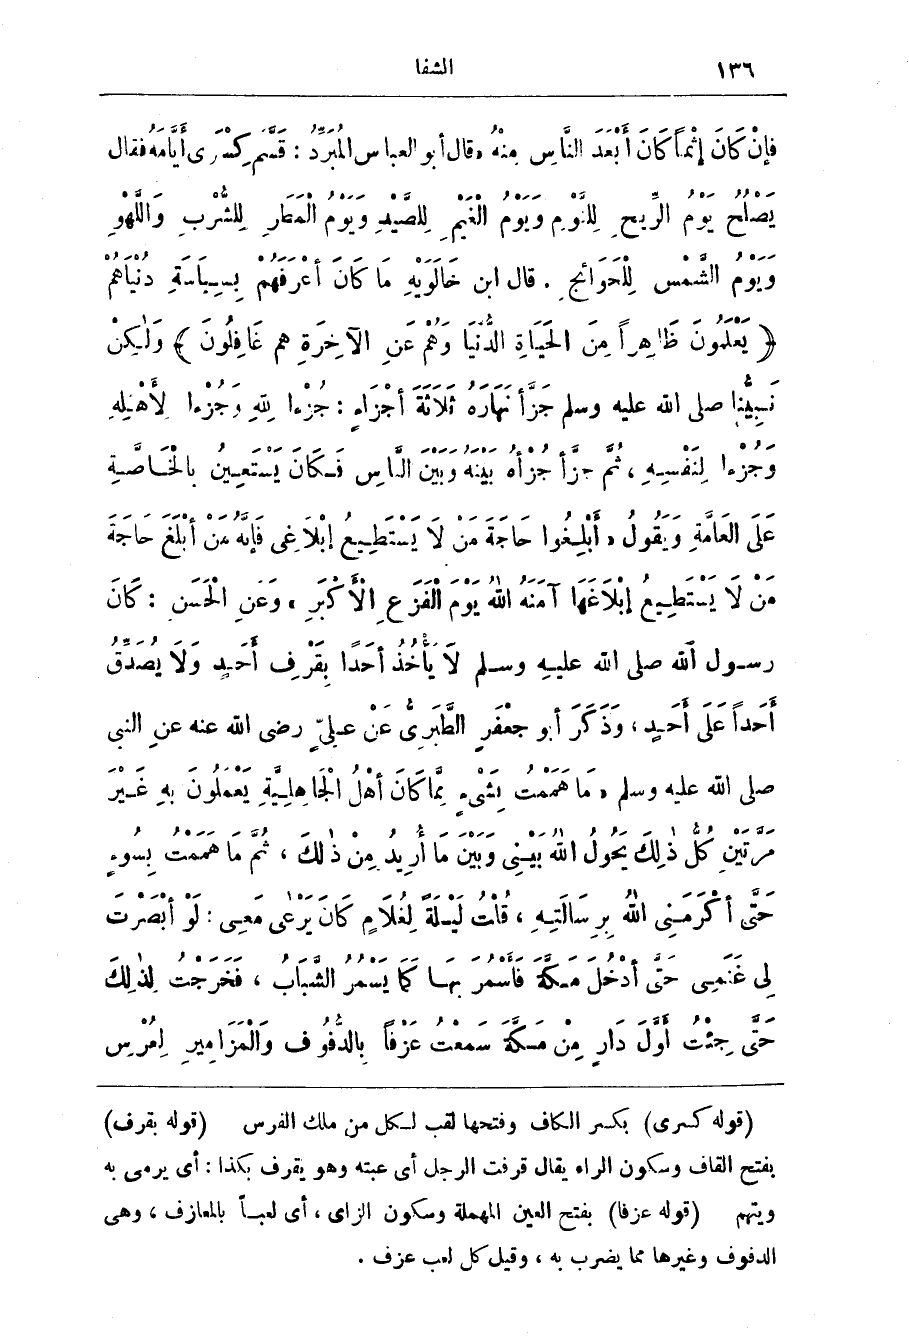 ١٣٦ الشفا
فإنْ كَانَ إثْماً كَانَ أَبْعَدَ النَّاسِ مِنْهُ ، قال أبو العباس المُبَرِّدُ : قَسَّمَ كِسْرَى أيَّامَهُ فقال
يَصْلُحُ يَوْمُ الرِّيحِ لِلنَّوْمِ وَيَوْمُ الْغَيْمِ لِلصَّيْدِ وَيَوْمُ الْمَطَرِ لِلشُّرْبِ وَاللَّهْوِ
وَيَوْمُ الشَّمْسِ لِلْحَوَائِجِ . قال ابن خَالَوَيْهِ مَا كَانَ أَعْرَفَهُمْ بِسِيَاسَةِ دُنْيَاهُمْ
﴿ يَعْلَمُونَ ظَاهِراً مِنَ الحَيَاةِ الدُّنْيَا وَهُمْ عَنِ الآخِرَةِ هم غَافِلُونَ ﴾ وَلَكِنْ
نَبِيُّنَا صلى الله عليه وسلم جَزَّأَ نَهَارَهُ ثَلَاثَةَ أَجْزَاءٍ : جُزْءًا لِلهِ وَجُزْءًا لِأَهْلِهِ
وَجُزْءًا لِنَفْسِهِ ، ثُمَّ جَزَّأَ جُزْأَهُ بَيْنَهُ وَبَيْنَ النَّاسِ فَكَانَ يَسْتَعِينُ بالْخَاصَّةِ
عَلَى العَامَّةِ وَيَقُولُ ، أَبْلِغُوا حَاجَةَ مَنْ لَا يَسْتَطِيعُ إبْلَاغِى فَإنَّهُ مَنْ أَبْلَغَ حَاجَةَ
مَنْ لَا يَسْتَطِيعُ إبْلَاغَهَا آمَنَهُ اللهُ يَوْمَ الْفَزَعِ الْأَكْبَرِ ، وَعَنِ الْحَسَنِ : كَانَ
رسول الله صلى الله عليه وسلم لَا يَأْخُذُ أَحَدًا بِقَرْفِ أَحَدٍ وَلَا يُصَدِّقُ
أَحَداً عَلَى أَحَدٍ ، وَذَكَرَ أبو جعْفَرٍ الطَّبَرِىُّ عَنْ عَلِىٍّ رضى الله عنه عنِ النبى
صلى الله عليه وسلم ، مَا هَمَمْتُ بِشَىْءٍ مِمَّا كَانَ أَهْلُ الْجَاهِلِيَّةِ يَعْمَلُونَ بِهِ غَيْرَ
مَرَّتَيْنِ كُلُّ ذٰلِكَ يَحُولُ اللهُ بَيْنِى وَبَيْنَ مَا أُرِيدُ مِنْ ذٰلِكَ ، ثُمَّ مَا هَمَمْتُ بِسُوءٍ
حَتَّى أَكْرَمَنِى اللهُ بِرِسَالَتِهِ ، قُلْتُ لَيْلَةً لِغُلَامٍ كَانَ يَرْعٰى مَعِى : لَوْ أَبْصَرْتَ
لِى غَنَمِى حَتَّى أَدْخُلَ مَكَّةَ فَأَسْمُرَ بِهَا كَمَا يَسْمُرُ الشَّبَابُ ، فَخَرَجْتُ لِذٰلِكَ
حَتَّى جِئْتُ أَوَّلَ دَارٍ مِنْ مَكَّةَ سَمِعْتُ عَزْفاً بِالدُّفُوفِ وَالْمَزَامِيرِ لِعُرْسِ
(قوله كسرى) بكسر الكاف وفتحها لقب لكل من ملك الفرس (قوله بقرف)
بفتح القاف وسكون الراء يقال قرفت الرجل أى عبته وهو يقرف بكذا : أى يرمى به
ويتهم (قوله عزفا) بفتح العين المهملة وسكون الزاى ، أى لعباً بالمعازف ، وهى
الدفوف وغيرها مما يضرب به ، وقيل كل لعب عزف .